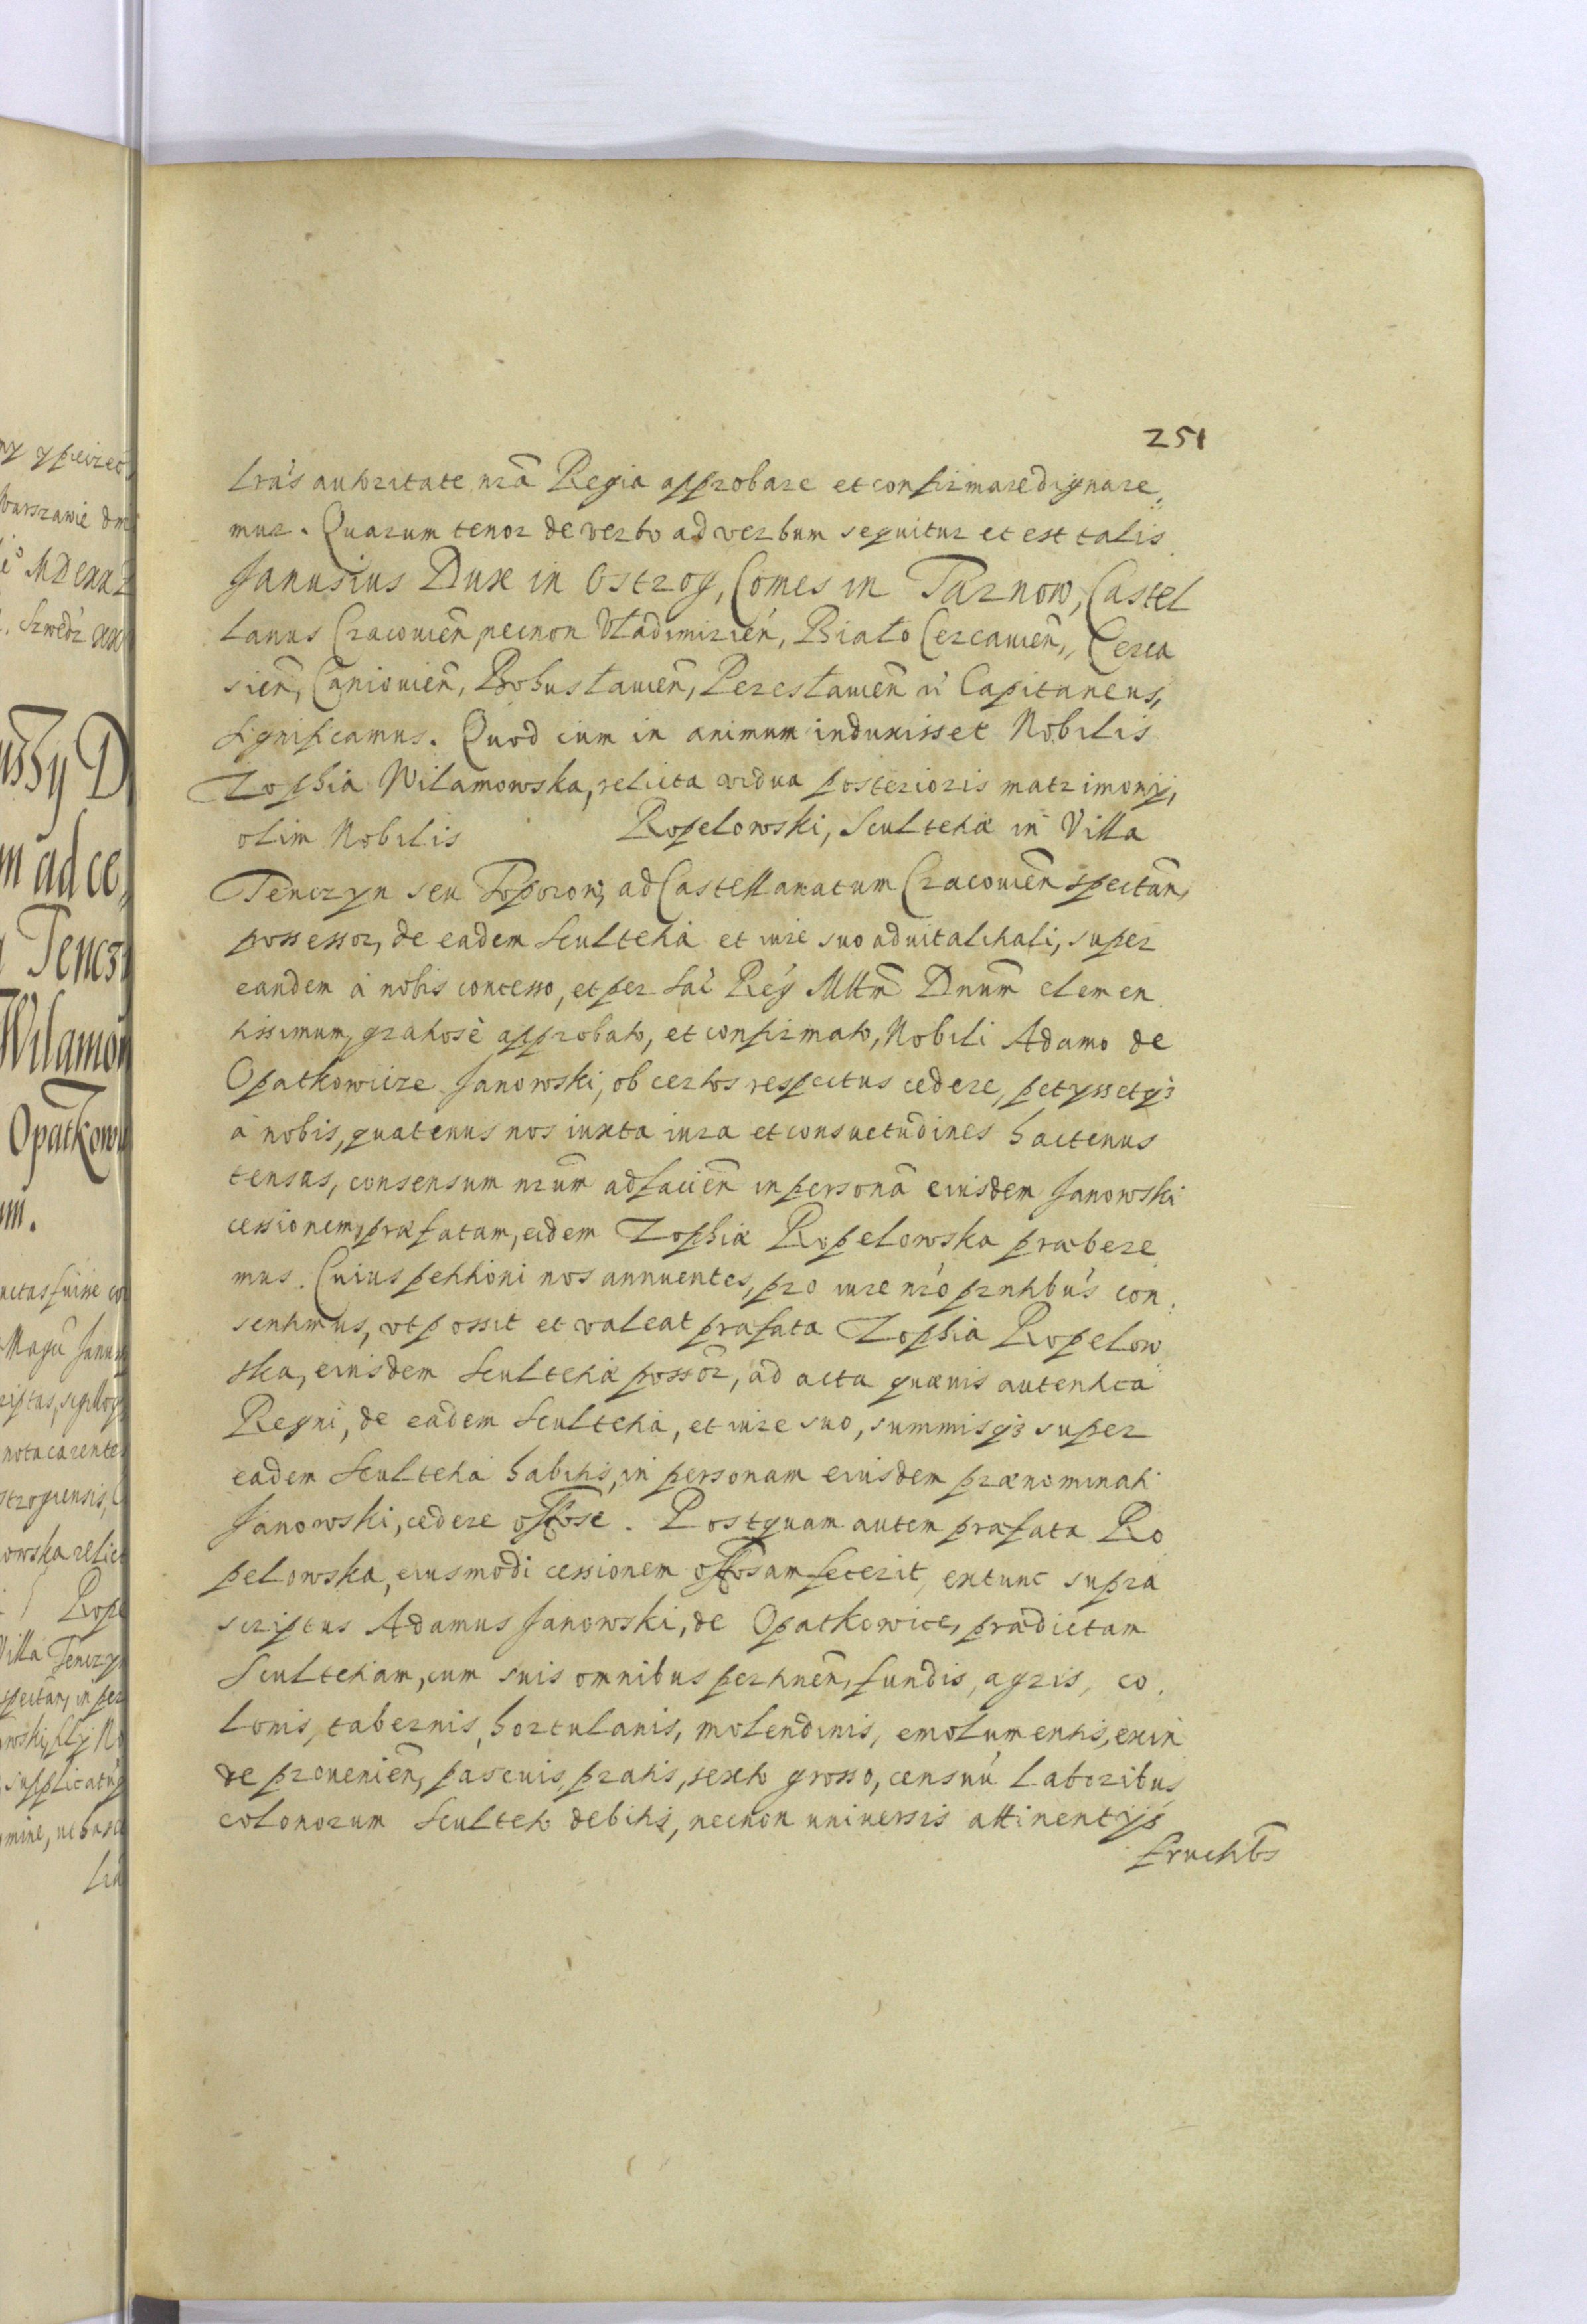 251
Lrãs authoritate nrã Regia approbare et confirmare dignare
mur. Quarum tenor de verbo ad verbum sequitur et est talis.
Janusius Dux in Ostrog, Comes in Tarnow, Castel
lanus Cracouien, necnon Vladimirien, Biało Cercauien, Cerca
sien, Caniouien, Bohuslauien, Pereslauien Capitaneus,
significamus. Quod cum in animum induxisset Nobilis
Zophia Wilamowska, relicta vidua posterioris matrimonij,
olim Nobilis Ropelowski, Scultetiæ in Villa
Tenczyn seu Toporow, ad Castellanatum Cracouien spectan,
possessor, de eadem Scultetia et iure suo aduitalitiali, super
eandem à nobis concesso, et per Sac Reg Mttm Dnum clemen
tissimum, gratiosè approbato, et confirmato, Nobili Adamo de
Opatkowicze Janowski, ob certos respectus cedere, petyssetq3
à nobis, quatenus nos iuxta iura et consuetudines hactenus
tensas, consensum nrum ad facien in personã eiusdem Janowski
cessionem, præfatam, eidem Zophiæ Ropelowska præbere
mus. Cuius petitioni nos annuentes, pro iure nro prntibus con
sentimus, vt possit et valeat præfata Zophia Ropelow
ska, eiusdem Scultetiæ possor, ad acta quæuis autentica
Regni, de eadem Scultetia, et iure suo, summisq3 super
eadem Scultetia habitis, in personam eiusdem prænominati
Janowski, cedere offose. Postquam autem præfata Ro
pelowska, eiusmodi cessionem offosam fecerit, extunc supra
scriptus Adamus Janowski, de Opatkowice, prædictam
Scultetiam, cum suis omnibus pertinen, fundis, agris, co
lonis, tabernis, hortulanis, molendinis, emolumentis, exin
de prouenien, pascuis, pratis, sexto grosso, censuũ Laboribus
colonorum Sculteto debitis, necnon uniuersis attinentijs
fructibs